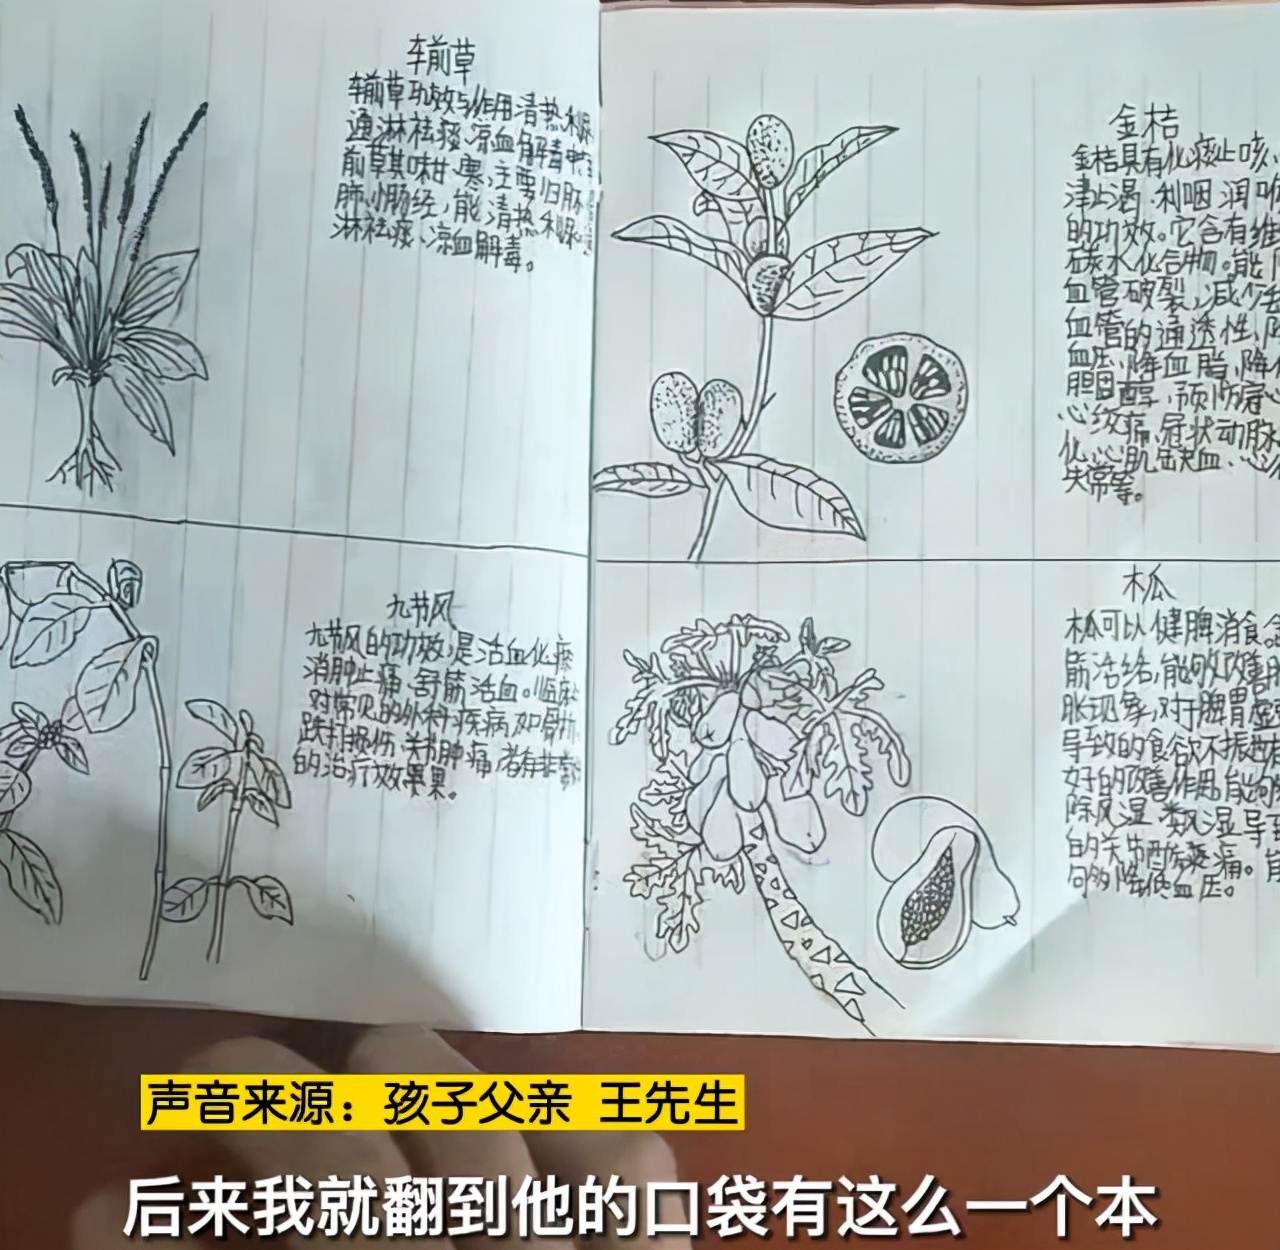 车前草
车前草功效与作用清热利尿
通淋祛痰、凉血解毒
前草其味甘、寒,主要归肝
肺、小肠经,能清热利尿
淋祛痰、凉血解毒。
九节风
九节风的功效,是活血化瘀
消肿止痛、舒筋活血。临床
对常见的外科疾病,如骨折
跌打损伤、关节肿痛,者有非常
的治疗效果。
金桔
金桔具有化痰止咳、
津止渴、利咽润喉
的功效。它含有维
碳水化合物。能
血管破裂,减少
血管的通透性,降
血压、降血脂、降低
胆固醇,预防冠心
心绞痛、冠状动脉
化、心肌缺血、心
失常等。
木瓜
木瓜可以健脾消食
筋活络,能够改善
胀现象,对于脾胃虚
导致的食欲不振
好的改善作用,能够
除风湿,类风湿导
的关节酸疼痛。能
够降低血压。
声音来源:孩子父亲 王先生
后来我就翻到他的口袋有这么一个本